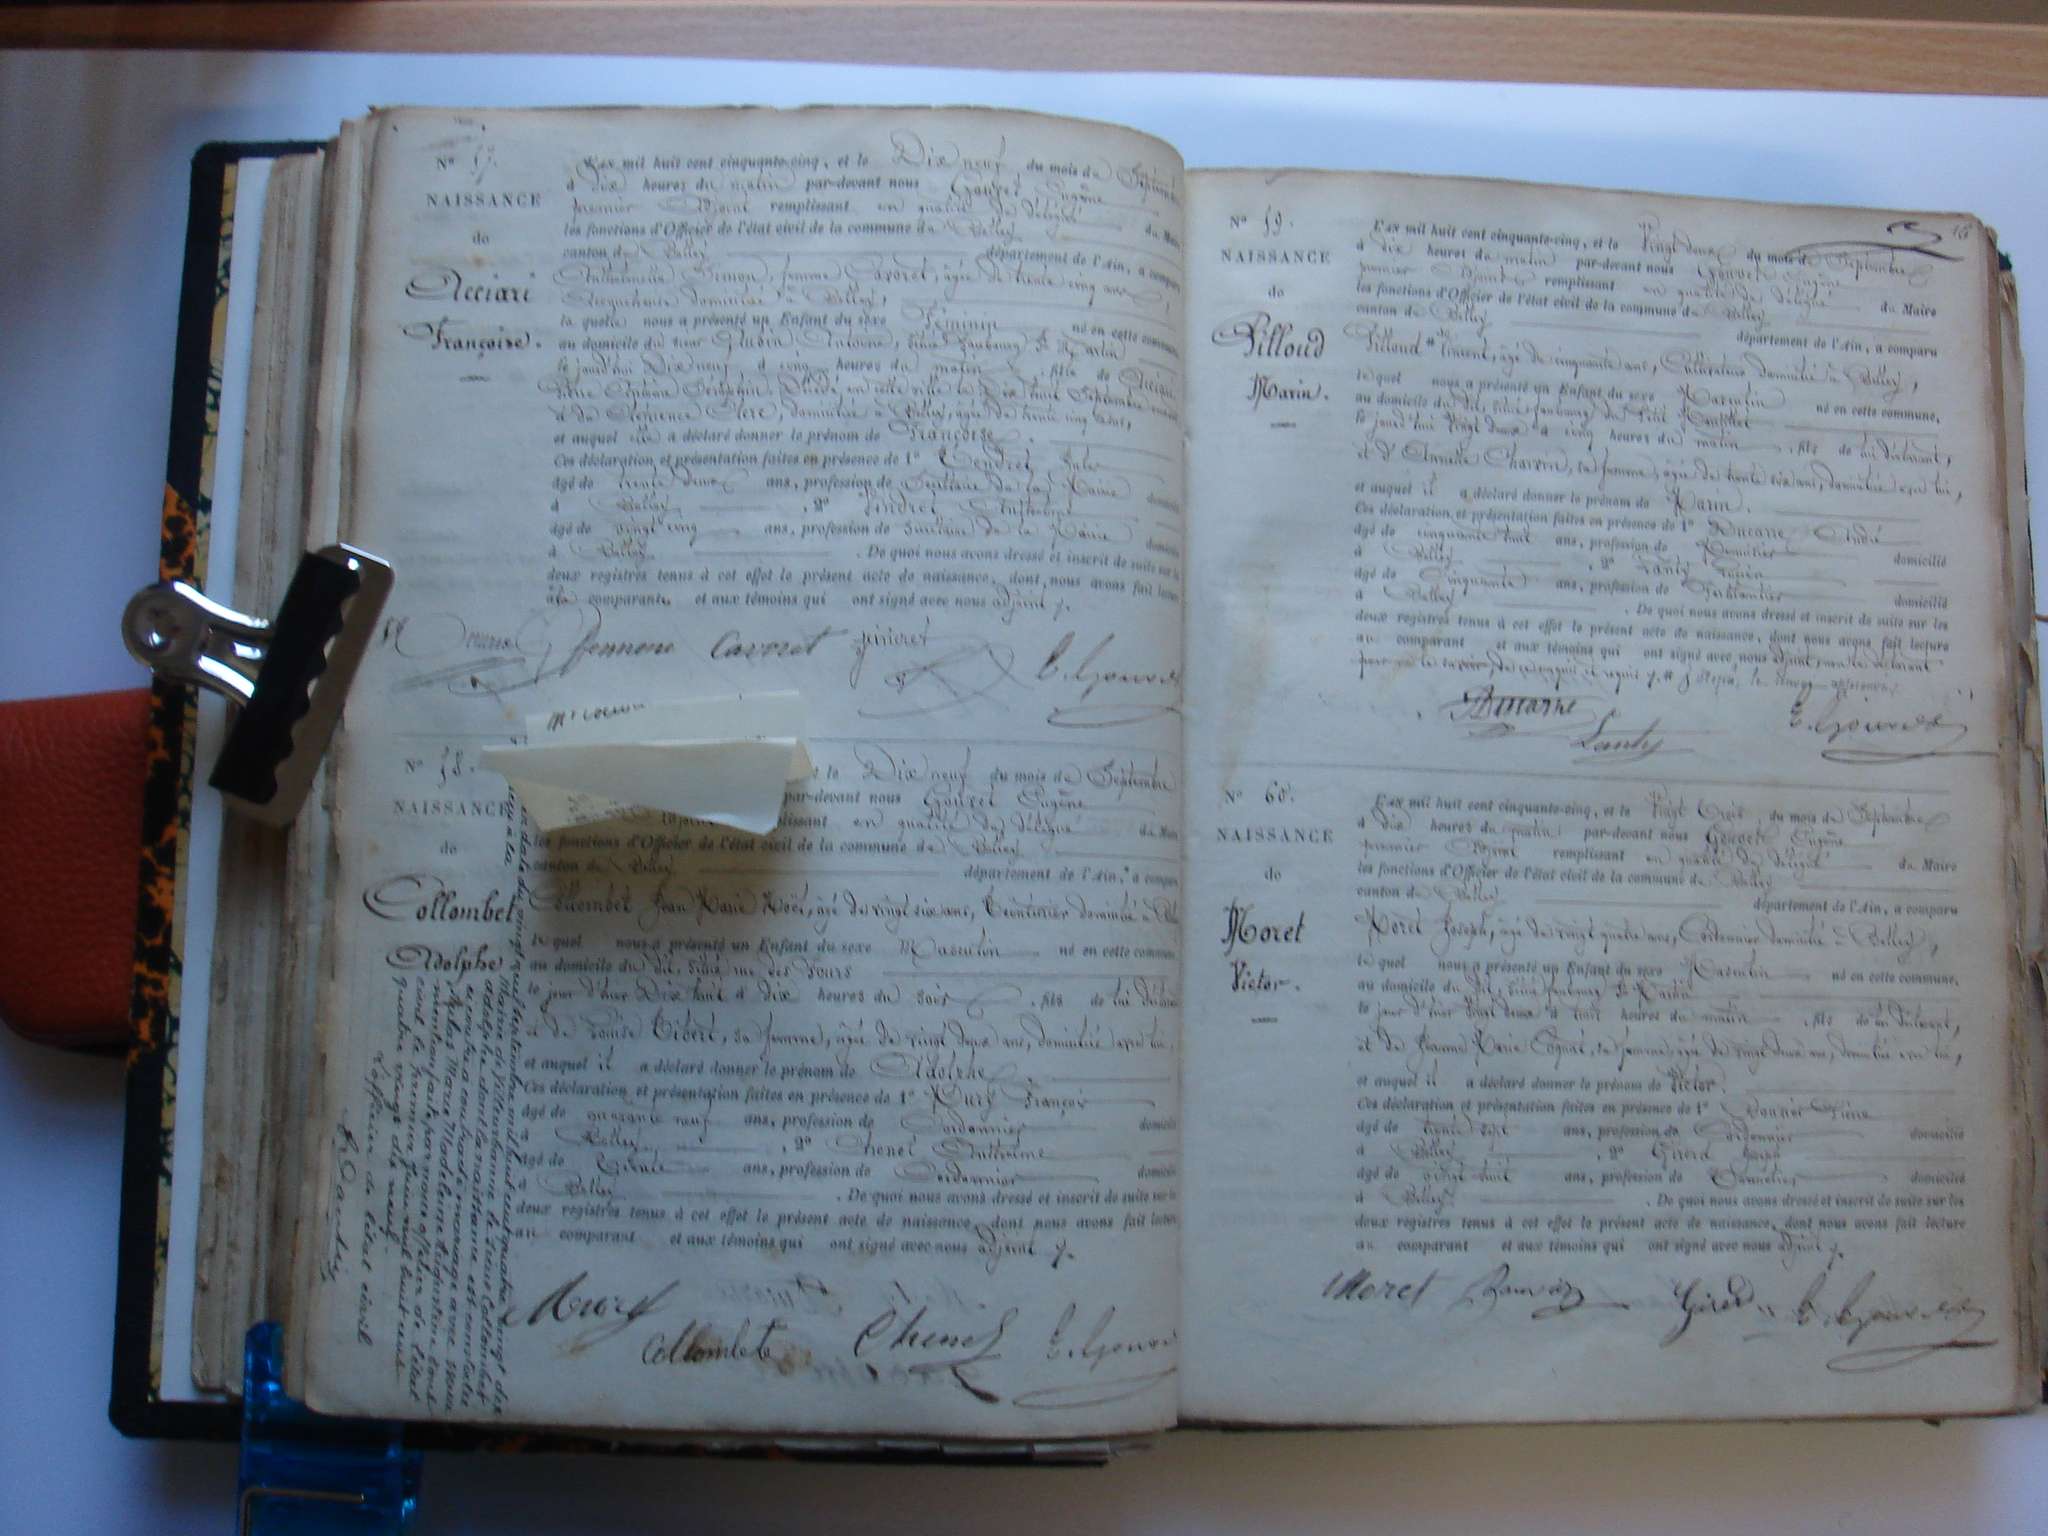 N° 57.
NAISSANCE
de
Acciari
Françoise.
L'an mil huit cent cinquante-cinq, et le Dix neuf du mois de Septembre
à dix heures du matin par-devant nous Gouvet Eugène
premier Adjoint remplissant en qualité de délégué du Maire
les fonctions d'Officier de l'état civil de la commune de Belley
canton de Belley département de l'Ain, a comparu
Simon, femme Cavoret, âgée de trente cinq ans,
domiciliée à Belley,
la quelle nous a présenté un Enfant du sexe Féminin né en cette commune
au domicile du sieur Antoine, situé faubourg St Martin
le jourd'hui Dix neuf, à cinq heures du matin, fille de Acciari
en cette ville le Dix huit Septembre
et de Clémence Clerc, domiciliée à Belley, âgée de trente cinq ans,
et auquel elle a déclaré donner le prénom de Françoise.
Ces déclaration et présentation faites en présence de 1°
âgé de trente deux ans, profession de Secrétaire de la Mairie domicilié
à Belley, 2°
âgé de vingt cinq ans, profession de Secrétaire de la Mairie domicilié
à Belley. De quoi nous avons dressé et inscrit de suite sur les
deux registres tenus à cet effet le présent acte de naissance, dont nous avons fait lecture
à la comparante et aux témoins qui ont signé avec nous adjoint
femme Cavoret E. Gouvet
N° 58.
NAISSANCE
de
Collombet
Adolphe
le Dix neuf du mois de Septembre
par-devant nous Gouvet Eugène
en qualité de délégué du Maire
les fonctions d'Officier de l'état civil de la commune de Belley
canton de Belley département de l'Ain, a comparu
Collombet Jean Marie Noël, âgé de vingt six ans, Teinturier domicilié à Belley
le quel nous a présenté un Enfant du sexe Masculin né en cette commune
au domicile du dit, situé rue des Tours
le jour d'hier Dix huit à dix heures du soir, fils de lui déclarant
et de Louise Tibert, sa femme, âgée de vingt deux ans, domiciliée avec lui,
et auquel il a déclaré donner le prénom de Adolphe
Ces déclaration et présentation faites en présence de 1° Mury François
âgé de quarante neuf ans, profession de Cordonnier domicilié
à Belley, 2° Chenet Anthelme
âgé de trente ans, profession de Cordonnier domicilié
à Belley. De quoi nous avons dressé et inscrit de suite sur les
deux registres tenus à cet effet le présent acte de naissance, dont nous avons fait lecture
au comparant et aux témoins qui ont signé avec nous adjoint
Mury Collombet Chenet E. Gouvet
en date du vingt sept septembre mil huit cent quatre vingt dix
neuf à la Mairie de Villeurbanne le sieur Collombet
Adolphe dont la naissance est constatée
ci contre a contracté mariage avec
Marie Madeleine
mention faite par nous officier de l'état
civil le premier juin mil huit cent
quatre vingt dix neuf
L'officier de l'état civil
N° 59.
NAISSANCE
de
Pilloud
Marin.
L'an mil huit cent cinquante-cinq, et le Vingt deux du mois de Septembre
à dix heures du matin par-devant nous Gouvet Eugène
premier Adjoint remplissant en qualité de délégué du Maire
les fonctions d'Officier de l'état civil de la commune de Belley
canton de Belley département de l'Ain, a comparu
Pilloud Vincent, âgé de cinquante ans, Cultivateur domicilié à Belley,
le quel nous a présenté un Enfant du sexe Masculin né en cette commune,
au domicile du dit, situé faubourg du
le jourd'hui Vingt deux à cinq heures du matin, fils de lui déclarant,
et d' Charvin, sa femme, âgée de trente six ans, domiciliée avec lui,
et auquel il a déclaré donner le prénom de Marin.
Ces déclaration et présentation faites en présence de 1° Ducarre André
âgé de cinquante huit ans, profession de domicilié
à Belley, 2° Lanty
âgé de Cinquante ans, profession de Ferblantier domicilié
à Belley. De quoi nous avons dressé et inscrit de suite sur les
deux registres tenus à cet effet le présent acte de naissance, dont nous avons fait lecture
au comparant et aux témoins qui ont signé avec nous adjoint, non le déclarant
pour ne le savoir, de ce enquis et requis
Ducarre
Lanty E. Gouvet
N° 60.
NAISSANCE
de
Moret
Victor.
L'an mil huit cent cinquante-cinq, et le Vingt trois du mois de Septembre
à dix heures du matin par-devant nous Gouvet Eugène
premier Adjoint remplissant en qualité de délégué du Maire
les fonctions d'Officier de l'état civil de la commune de Belley
canton de Belley département de l'Ain, a comparu
Moret Joseph, âgé de vingt quatre ans, Cordonnier domicilié à Belley,
le quel nous a présenté un Enfant du sexe Masculin né en cette commune,
au domicile du dit, situé faubourg St Martin
le jour d'hier Vingt deux à huit heures du matin, fils de lui déclarant,
et de Jeanne Marie Cognat, sa femme, âgée de vingt deux ans, domiciliée avec lui,
et auquel il a déclaré donner le prénom de Victor.
Ces déclaration et présentation faites en présence de 1°
âgé de trente sept ans, profession de Cordonnier domicilié
à Belley, 2° Girod Joseph
âgé de vingt huit ans, profession de domicilié
à Belley. De quoi nous avons dressé et inscrit de suite sur les
deux registres tenus à cet effet le présent acte de naissance, dont nous avons fait lecture
au comparant et aux témoins qui ont signé avec nous adjoint
Moret Girod E. Gouvet